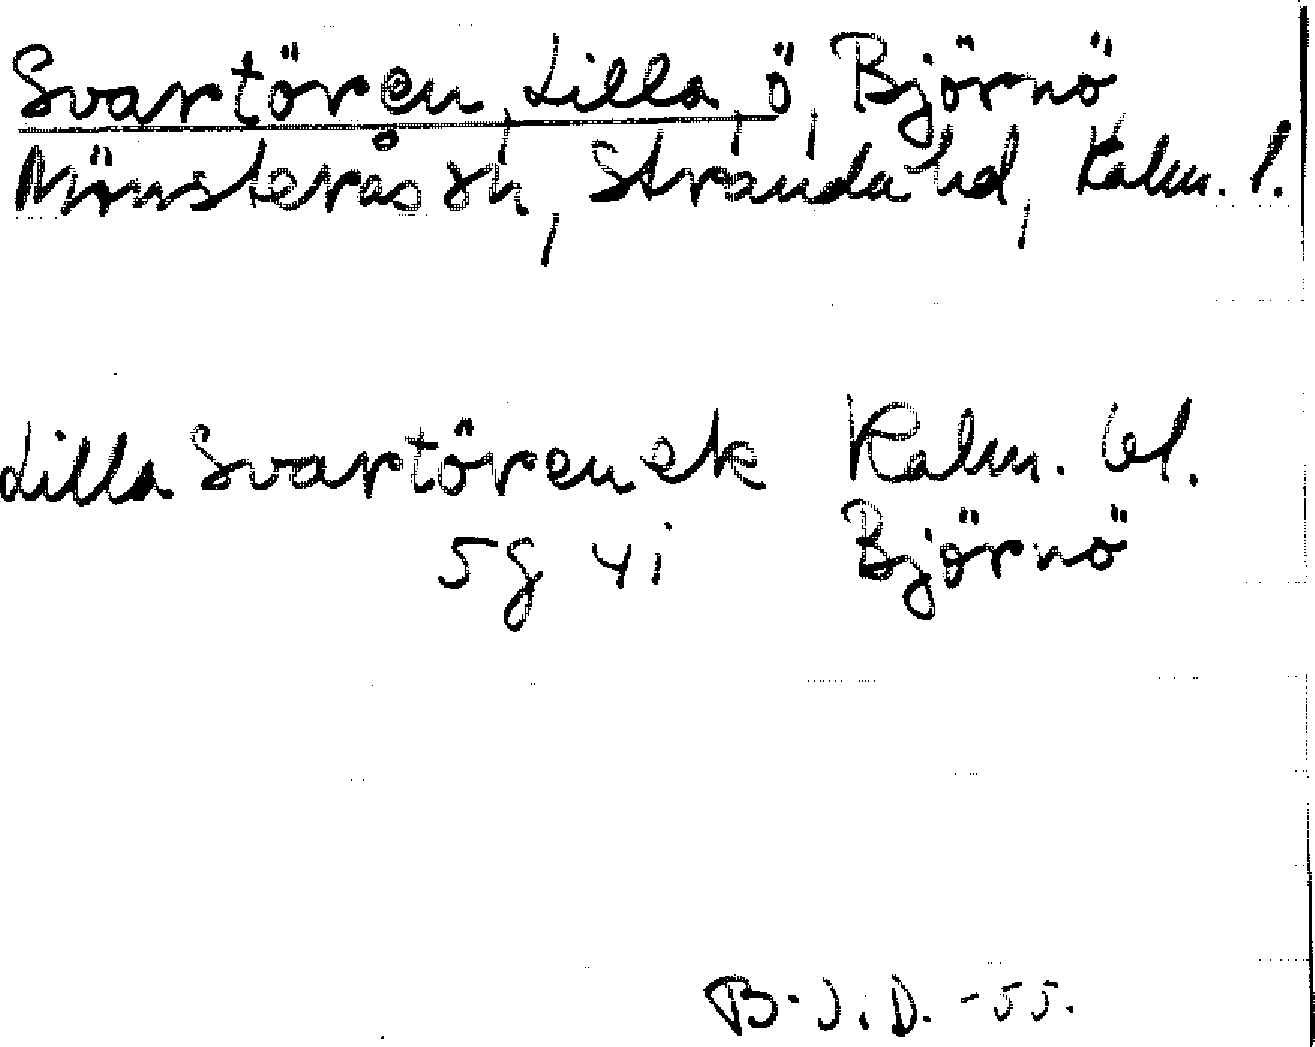 Svartören, Lilla, ö, Björnö
Mönsterås sn, Stranda hd, Kalm. l.
Lilla Svartören ek Kalm. bl.
5g 4i Björnö
B.J.D. -55.